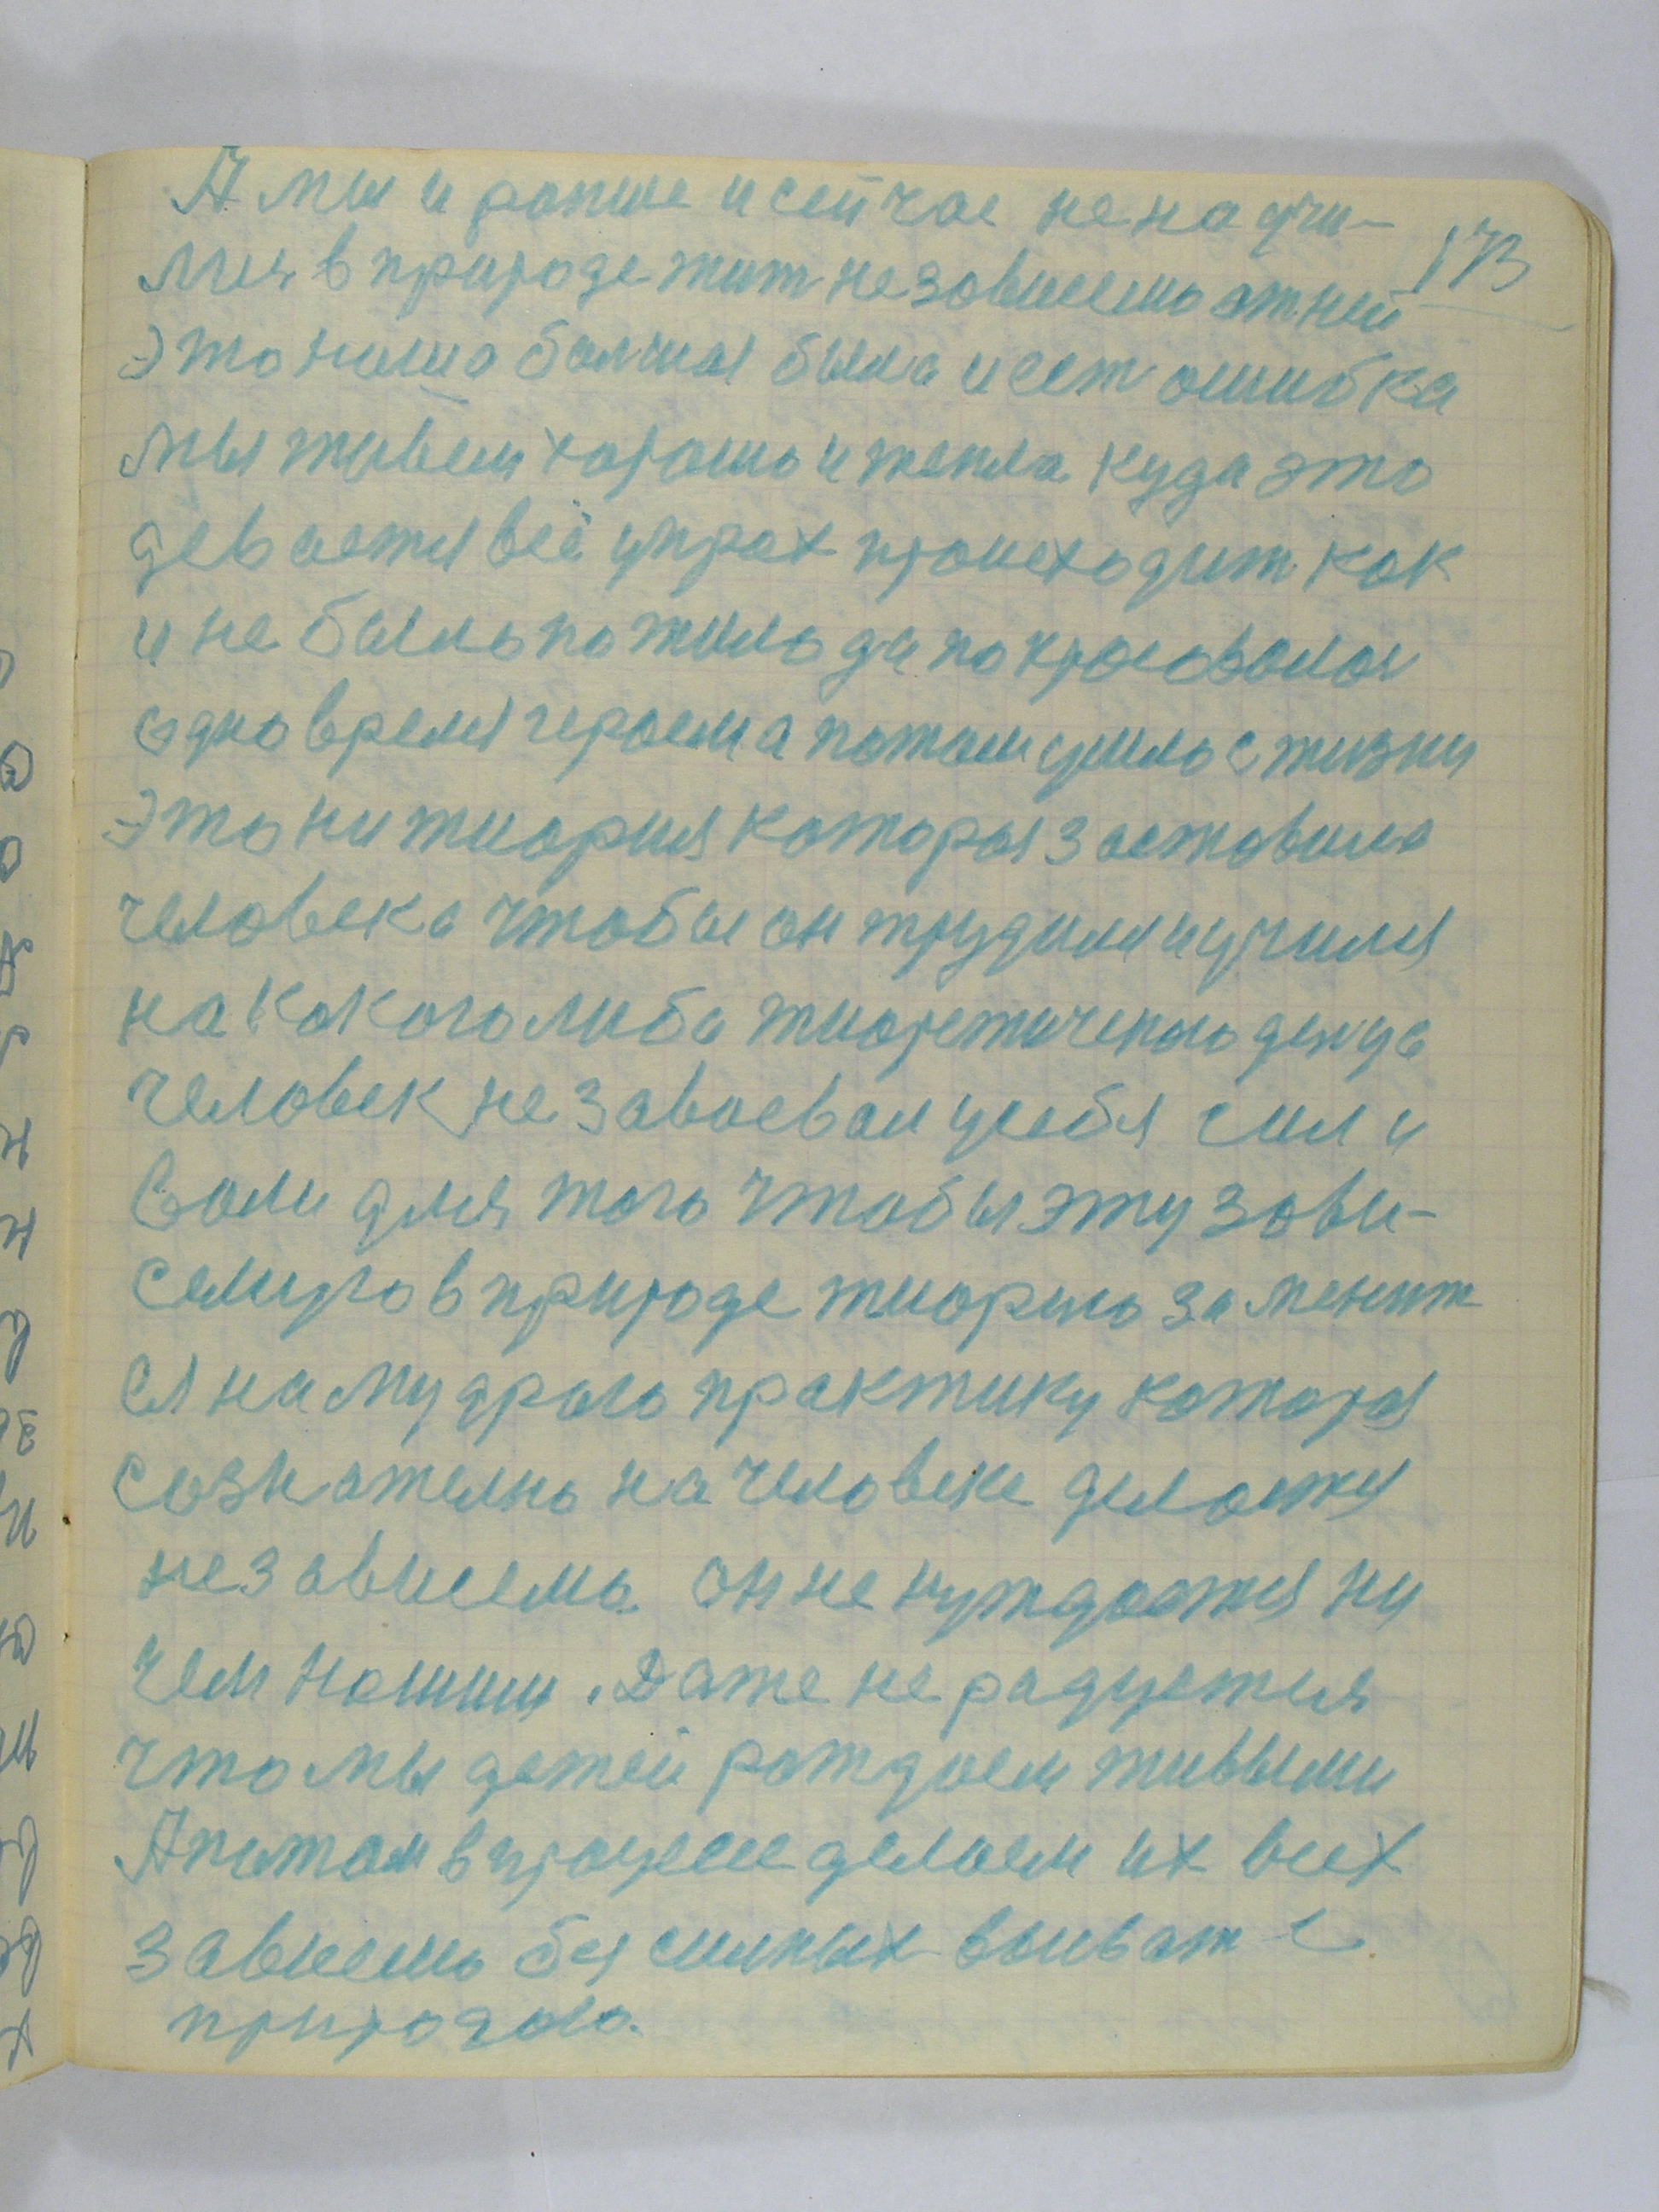 173
А мы и ранше и сейчас не научи-
лися в природе жит независемо от ней
Это наша болшая была и ест ошибка
мы живем хорошо и тепла куда это
девается всё упрах происходит как
и не было пожило да покрасовалос
одно время героем а потом ушло с жизни
Это ни тиория которая заставила
человека чтобы он трудился и учился
на какого либо тиоретическаго
человек не завоевал у себя сил и
воли для того чтобы эту зави-
семую в природе тиорию заменит
ся на мудраю практику которая
сознателно на человеке делается
независема он не нуждается ни
чем нашим. Даже не радуется
что мы детей рождаем живыми
А потом в процесе делаем их всех
зависемо бессилных воиват с
природою.